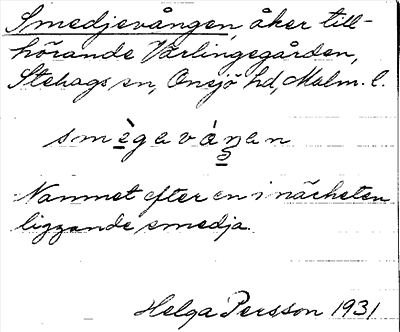 Smedjevången, åker till-
hörande Värlingegården,
Stehags sn, Onsjö hd, Malm. l.
smègaváŋan
Namnet efter en i närheten
liggande smedja.
Helga Persson 1931